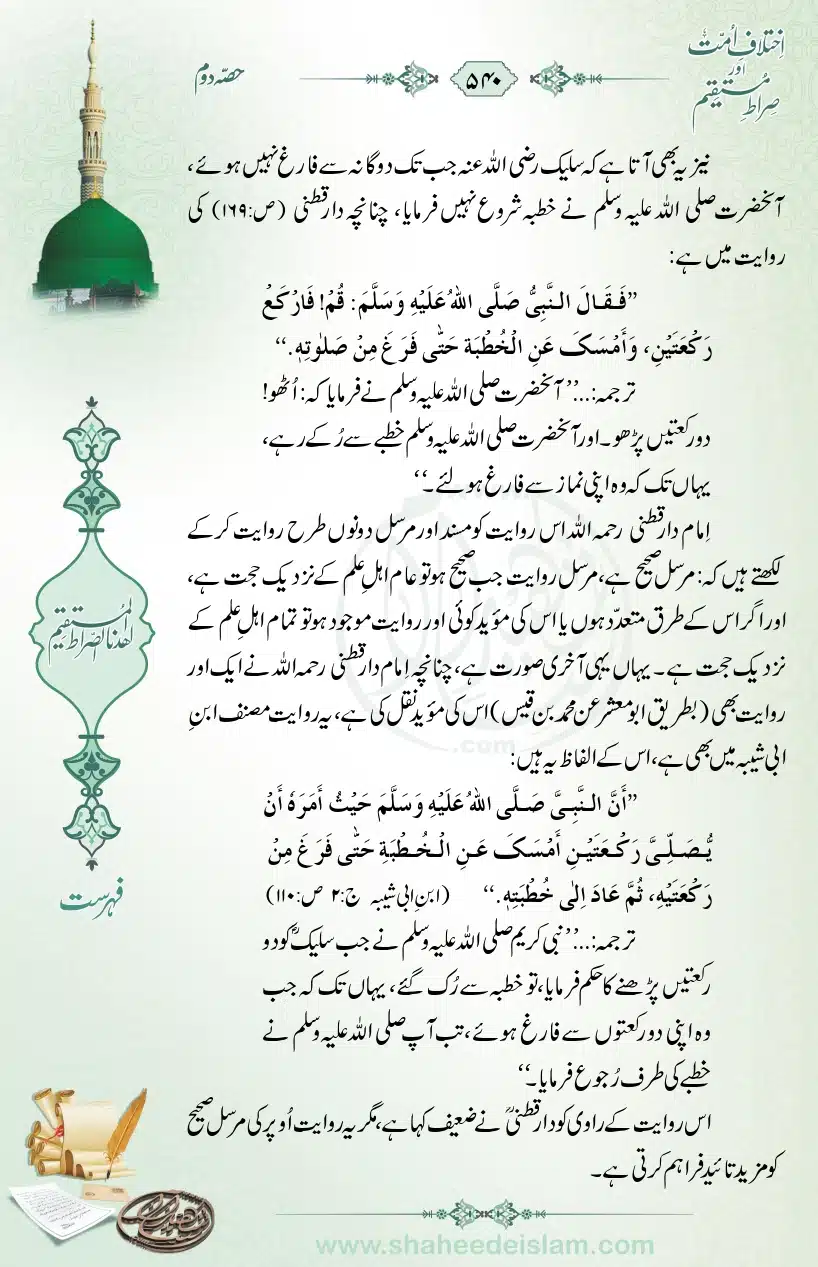 اِختلافِ اُمّت
اور
صِراطِ مُستقیم
۵۴۰
حصّہ دوم
نیز یہ بھی آتا ہے کہ سلیک رضی اللہ عنہ جب تک دوگانہ سے فارغ نہیں ہوئے،
آنحضرت صلی اللہ علیہ وسلم نے خطبہ شروع نہیں فرمایا، چنانچہ دارقطنی (ص:۱۶۹) کی
روایت میں ہے:
”فَقَالَ النَّبِیُّ صَلَّی اللہُ عَلَیْہِ وَسَلَّمَ: قُمْ! فَارْکَعْ
رَکْعَتَیْنِ، وَأَمْسَکَ عَنِ الْخُطْبَة حَتّٰی فَرَغَ مِنْ صَلٰوتِہٖ.“
ترجمہ:...’’آنحضرت صلی اللہ علیہ وسلم نے فرمایا کہ: اُٹھو!
دو رکعتیں پڑھو۔ اور آنحضرت صلی اللہ علیہ وسلم خطبے سے رُکے رہے،
یہاں تک کہ وہ اپنی نماز سے فارغ ہولئے۔‘‘
اِمام دارقطنی رحمہ اللہ اس روایت کو مسند اور مرسل دونوں طرح روایت کرکے
لکھتے ہیں کہ: مرسل صحیح ہے، مرسل روایت جب صحیح ہو تو عام اہلِ علم کے نزدیک حجت ہے،
اور اگر اس کے طرق متعدّد ہوں یا اس کی مؤید کوئی اور روایت موجود ہو تو تمام اہلِ علم کے
نزدیک حجت ہے۔ یہاں یہی آخری صورت ہے، چنانچہ اِمام دارقطنی رحمہ اللہ نے ایک اور
روایت بھی (بطریق ابو معشر عن محمد بن قیس) اس کی مؤید نقل کی ہے، یہ روایت مصنف ابنِ
ابی شیبہ میں بھی ہے، اس کے الفاظ یہ ہیں:
”أَنَّ النَّبِیَّ صَلَّی اللہُ عَلَیْہِ وَسَلَّمَ حَیْثُ أَمَرَہٗ أَنْ
یُّصَلِّیَ رَکْعَتَیْنِ أَمْسَکَ عَنِ الْخُطْبَةِ حَتّٰی فَرَغَ مِنْ
رَکْعَتَیْہِ، ثُمَّ عَادَ اِلٰی خُطْبَتِہٖ.“ (ابنِ ابی شیبہ ج:۲ ص:۱۱۰)
ترجمہ:...’’نبی کریم صلی اللہ علیہ وسلم نے جب سلیکؓ کو دو
رکعتیں پڑھنے کا حکم فرمایا، تو خطبہ سے رُک گئے، یہاں تک کہ جب
وہ اپنی دو رکعتوں سے فارغ ہوئے، تب آپ صلی اللہ علیہ وسلم نے
خطبے کی طرف رُجوع فرمایا۔‘‘
اس روایت کے راوی کو دارقطنیؒ نے ضعیف کہا ہے، مگر یہ روایت اُوپر کی مرسل صحیح
کو مزید تائید فراہم کرتی ہے۔
اھدنا الصراط المستقیم
فہرست
.com
www.shaheedeislam.com